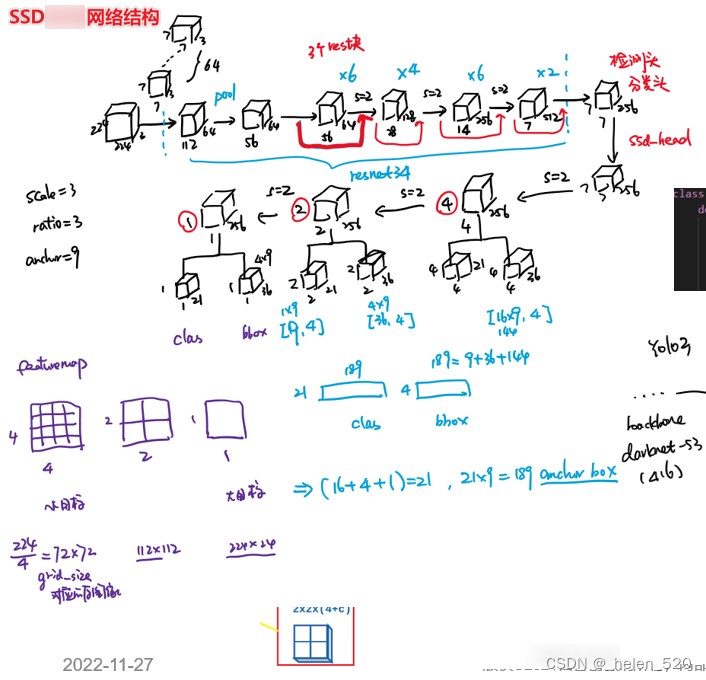 SSD 网络结构
7 3
7 3
7
64
3个rest块
检测头
分类头
pool
×6
s=2
×4
s=2
×6
s=2
×2
224 224 3
112 64
56 64
56 64
128
14 256
7 512
7 7 256
resnet34
ssd_head
7 256
scale=3
ratio=3
anchor=9
s=2
s=2
s=2
① 1 256
② 2 256
④ 4 256
1 1 21
4×9
1 1 36
2 2 21
2 2 36
4 4 21
4 4 36
clas
bbox
1×9
[9,4]
4×9
[36,4]
[16×9,4]
144
featuremap
189
189=9+36+144
21
4
clas
bbox
4
4
2
2
1
1
小目标
大目标
⇒(16+4+1)=21 , 21×9=189 anchor box
backbone
darknet-53
(416)
224/4=72×72
112×112
grid_size
2x2x(4+c)
2022-11-27
CSDN @_helen_520
class